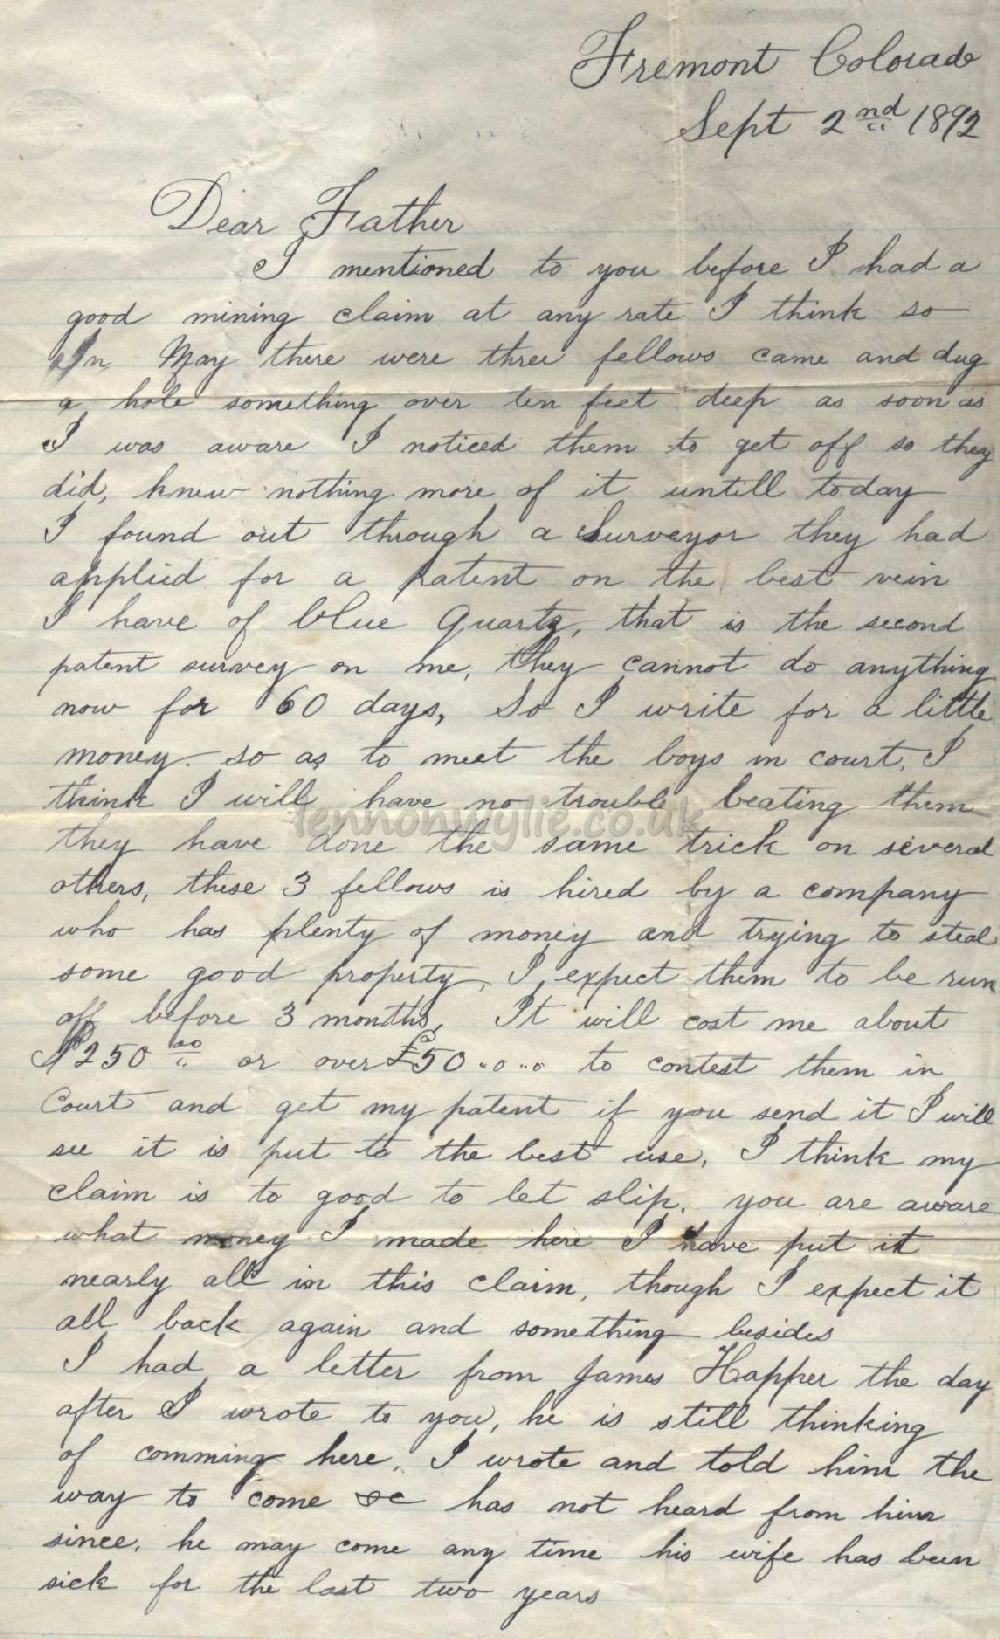 Fremont Colorado
Sept 2nd 1892
Dear Father
I mentioned to you before I had a
good mining claim at any rate I think so
In May there were three fellows came and dug
a hole something over ten feet deep as soon as
I was aware I noticed them to get off so they
did, knew nothing more of it untill today
I found out through a Surveyor they had
applied for a patent on the best vein
I have of blue Quartz, that is the second
patent survey on me, they cannot do anything
now for 60 days, So I write for a little
money so as to meet the boys in court, I
think I will have no trouble beating them
lennonwylie.co.uk
they have done the same trick on several
others, these 3 fellows is hired by a company
who has plenty of money and trying to steal
some good property, I expect them to be run
off before 3 months, It will cost me about
$250 00 or over £50..o..o to contest them in
Court and get my patent if you send it I will
see it is put to the best use, I think my
claim is to good to let slip, you are aware
what money I made here I have put it
nearly all in this claim, though I expect it
all back again and something besides
I had a letter from James Happer the day
after I wrote to you, he is still thinking
of comming here, I wrote and told him the
way to come &c has not heard from him
since, he may come any time his wife has been
sick for the last two years